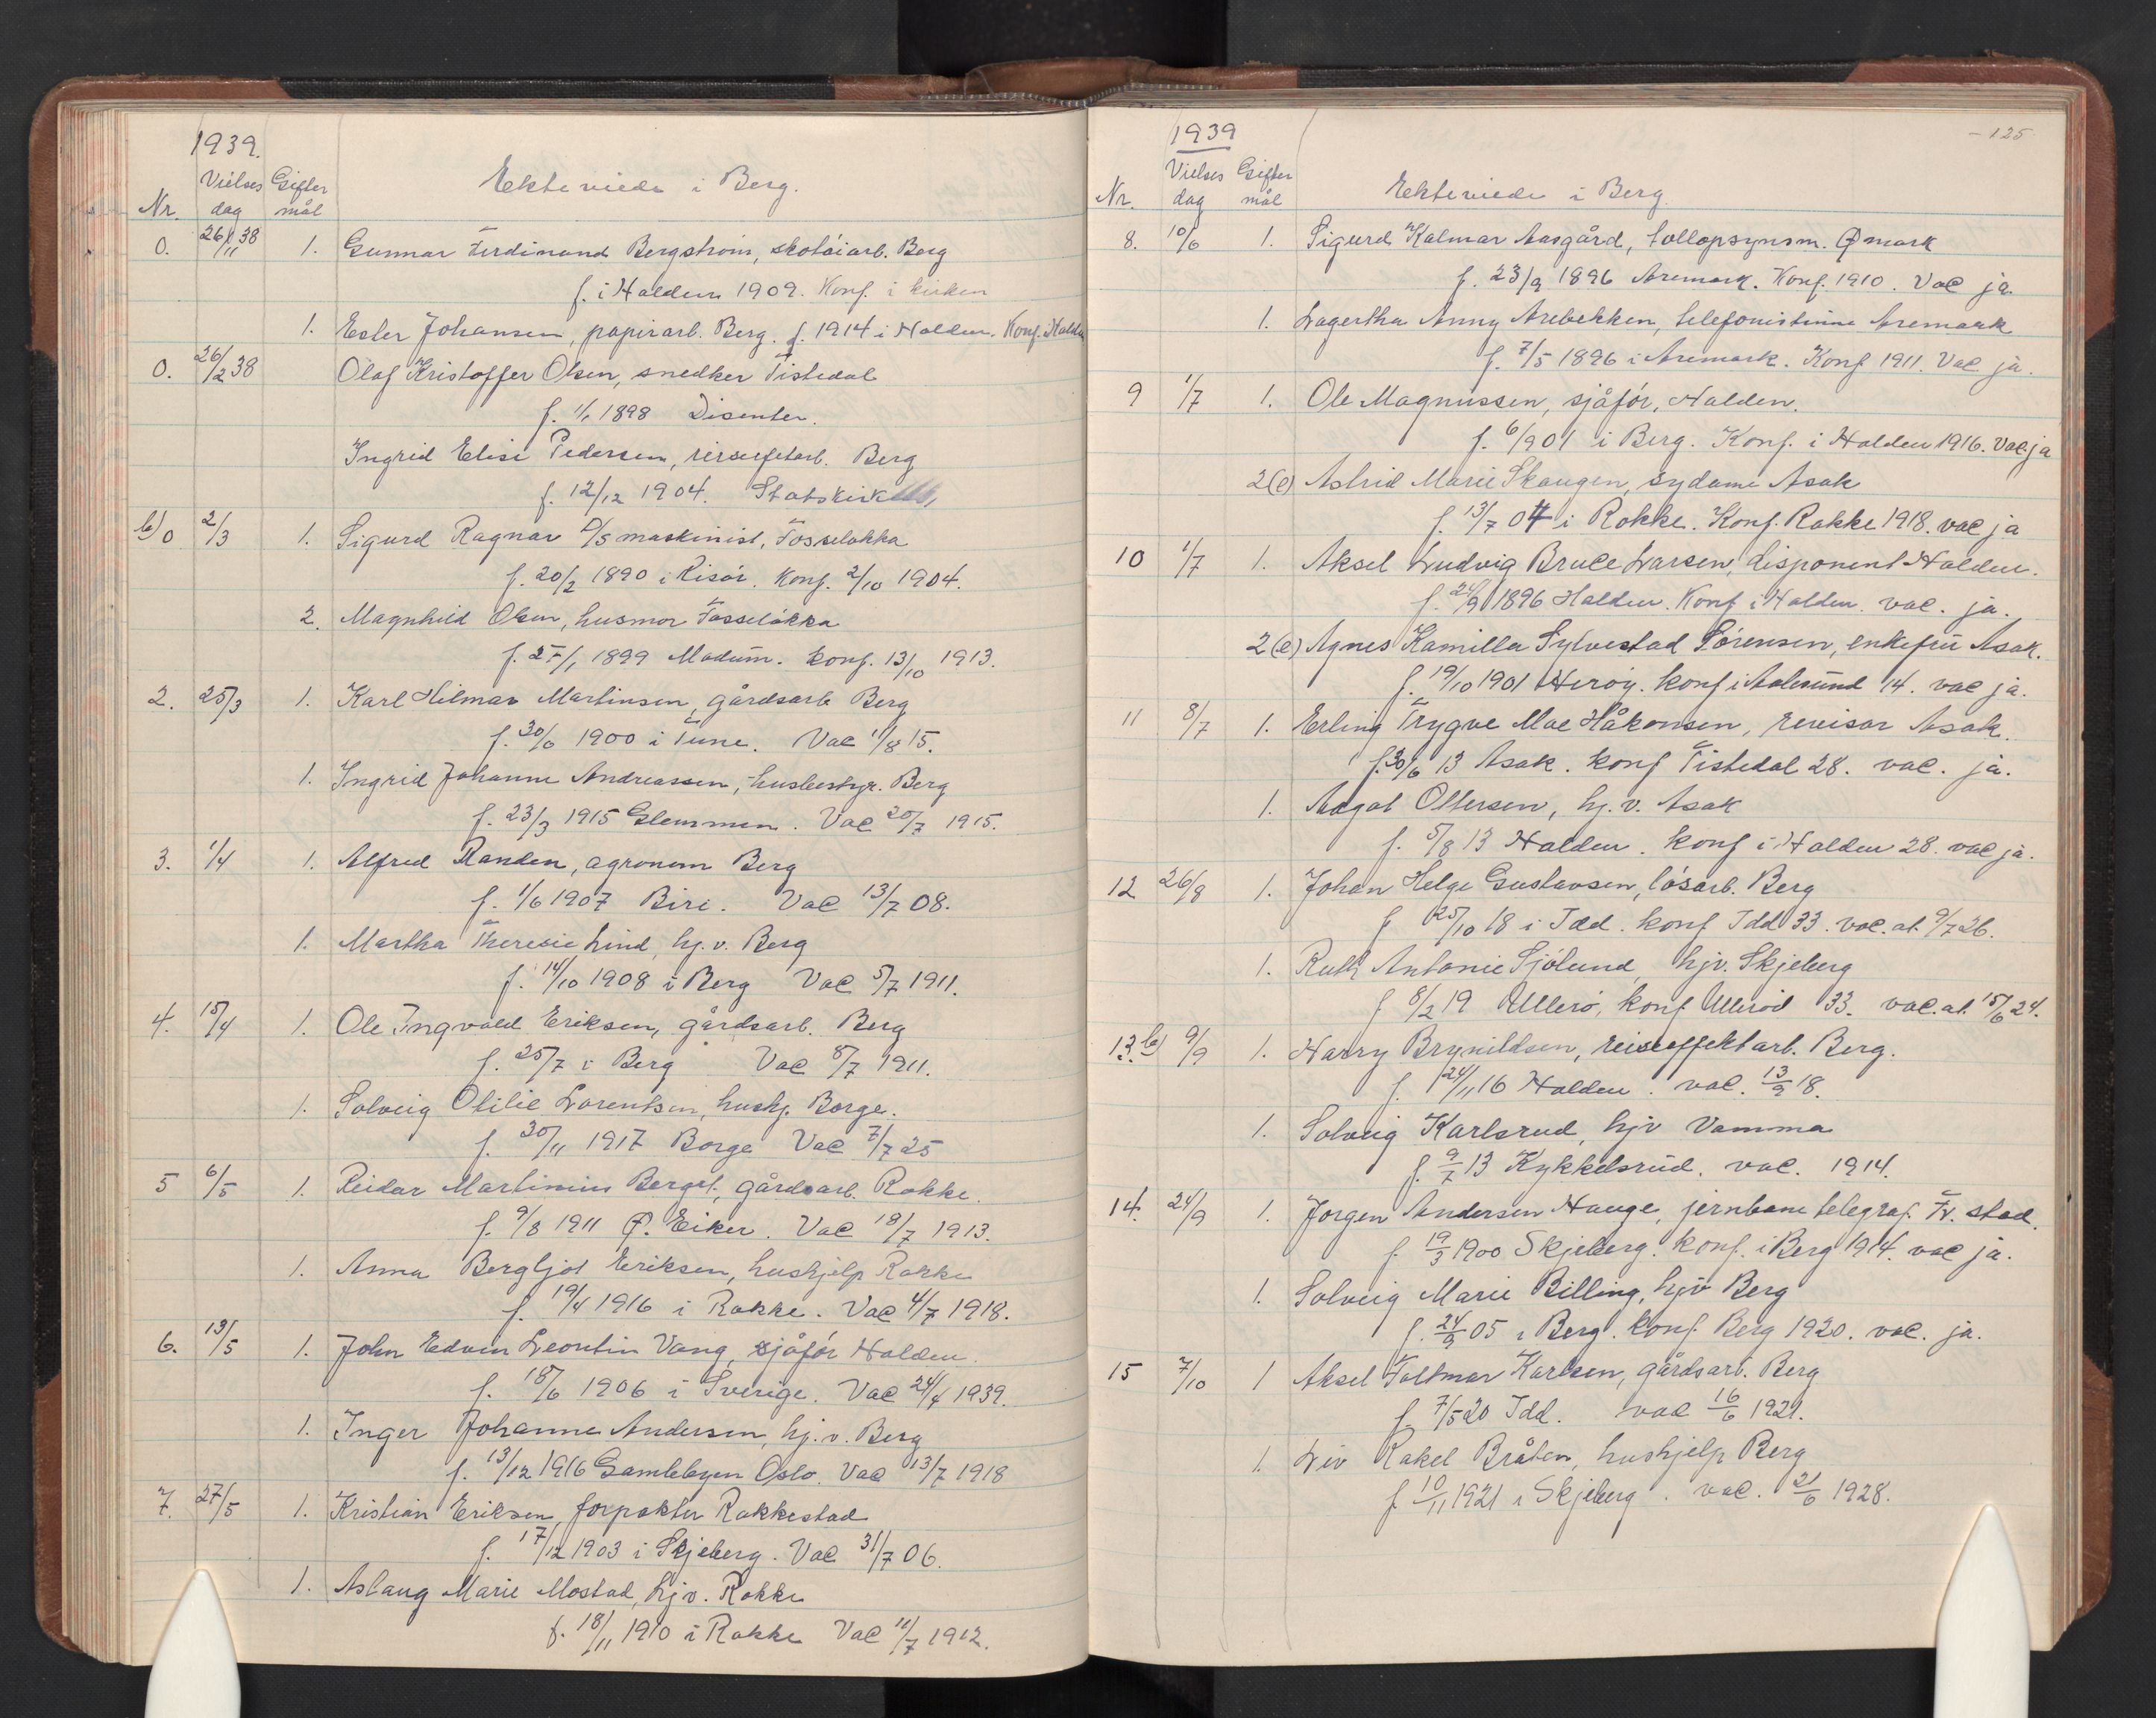 1939.
Nr. Vielses dag Gifter mål Ekteviede i Berg.
0. 26/11 38 1. Gunnar Ferdinand Bergstrøm, skotøiarb. Berg
f. i Halden 1909. Konf. i kirken
1. Ester Johansen, papirarb. Berg. f. 1914 i Halden. Konf. Halden
0. 26/2 38 Olaf Kristoffer Olsen, snedker Tistedal
f. 1/1 1898 Disenter.
Ingrid Elise Pedersen, Berg
f. 12/12 1904. Statskirk
b) 0 2/3 1. Sigurd Ragnar D/S maskinist, Fosseløkka
f. 20/2 1890 i Risør. Konf. 2/10 1904.
2. Magnhild Olsen, husmor Fosseløkka
f. 27/1 1899 Modum. konf. 13/10 1913.
2. 25/3 1. Karl Hilmar Martinsen, gårdsarb. Berg
f. 30/6 1900 i Tune. Vac 1/8 15.
1. Ingrid Johanne Andreassen, husbestyr. Berg
f. 23/3 1915 Glemmen. Vac 20/7 1915.
3. 1/4 1. Alfred Randen, agronom Berg
f. 1/6 1907 Biri. Vac 13/7 08.
1. Martha Theresie Lind, hj. v. Berg
f. 14/10 1908 i Berg Vac 5/7 1911.
4. 15/4 1. Ole Ingvald Eriksen, gårdsarb. Berg
f. 25/7 i Berg Vac 8/7 1911.
1. Solveig Otilie Lorentsen, hushj. Borge.
f. 30/11 1917 Borge Vac 7/7 25
5 6/5 1. Reidar Martinius Berget, gårdsarb. Rokke.
f. 9/8 1911 Ø. Eiker. Vac 18/7 1913.
1. Anna Bergljot Eriksen, hushjelp Rokke
f. 19/4 1916 i Rokke. Vac 4/7 1918.
6. 13/5 1. John Edvin Leontin Vang, sjåfør Halden.
f. 18/6 1906 i Sverige. Vac 24/4 1939.
1. Inger Johanne Andersen, hj. v. Berg
f. 13/12 1916 Gamlebyen Oslo. Vac 13/7 1918
7. 27/5 1. Kristian Eriksen, forpakter Rakkestad
f. 17/12 1903 i Skjeberg. Vac 31/7 06.
1. Aslaug Marie Mostad, hj v. Rokke
f. 18/11 1910 i Rokke Vac 11/7 1912.
1939 - 125
Nr. Vielses dag Gifter mål Ekteviede i Berg
8. 10/6 1. Sigurd Kalmar Aasgård, tollopsynsm. Ømark
f. 23/9 1896 Aremark. Konf. 1910. Vac ja
1. Lagertha Anny Arebekken, telefonistinne Aremark
f. 7/5 1896 i Aremark. Konf 1911. Vac ja.
9 1/7 1. Ole Magnussen, sjåfør, Halden.
f. 6/9 01 i Berg. Konf. i Halden 1916. Vac. ja
2(e) Astrid Marie Skaugen, sydame Asak
f. 13/7 04 i Rokke. Konf. Rokke 1918. vac ja
10 1/7 1. Aksel Ludvig Bruce Larsen, disponent Halden.
f. 24/9 1896 Halden. Konf i Halden. vac. ja.
2(e) Agnes Kamilla Sylvestad Sørensen, enkefru Asak.
f. 19/10 1901 Herøy. konf i Aalesund 14. vac ja.
11 8/7 1. Erling Trygve Moe Håkonsen, revisor Asak.
f. 30/6 13 Asak. konf Tistedal 28. vac. ja.
1. Aagot Ottersen, hj. v. Asak
f. 5/8 13 Halden. konf i Halden 28. vac ja.
12 26/8 1. Johan Helge Gustavsen, løsarb. Berg
f 25/10 18 i Idd. konf Idd 33. vac. at. 9/7 26.
1. Ruth Antonie Sjølund, hjv. Skjeberg
f 8/2 19 Ullerø, konf Ullerød 33. vac. at. 15/6 24.
13. b) 9/9 1. Harry Brynildsen, reiseeffektarb. Berg.
f. 24/11 16 Halden. vac. 13/9 18.
1. Solveig Karlsrud, hjv Vamma
f. 9/7 13 Kykkelsrud. vac. 1914.
14. 24/9 1. Jørgen Andersen Hauge, jernbane telegraf. Fr. stad.
f. 19/3 1900 Skjeberg. konf. i Berg 1914. vac ja.
1. Solveig Marie Billing, hjv Berg
f. 24/9 05 i Berg. konf. Berg 1920. vac. ja.
15 7/10 1 Aksel Foltmar Karlsen, gårdsarb. Berg
f. 7/5 20 Idd. vac 16/6 1921.
1. Liv Rakel Bråten, hushjelp Berg
f. 10/11 1921 i Skjeberg. vac. 21/6 1928.